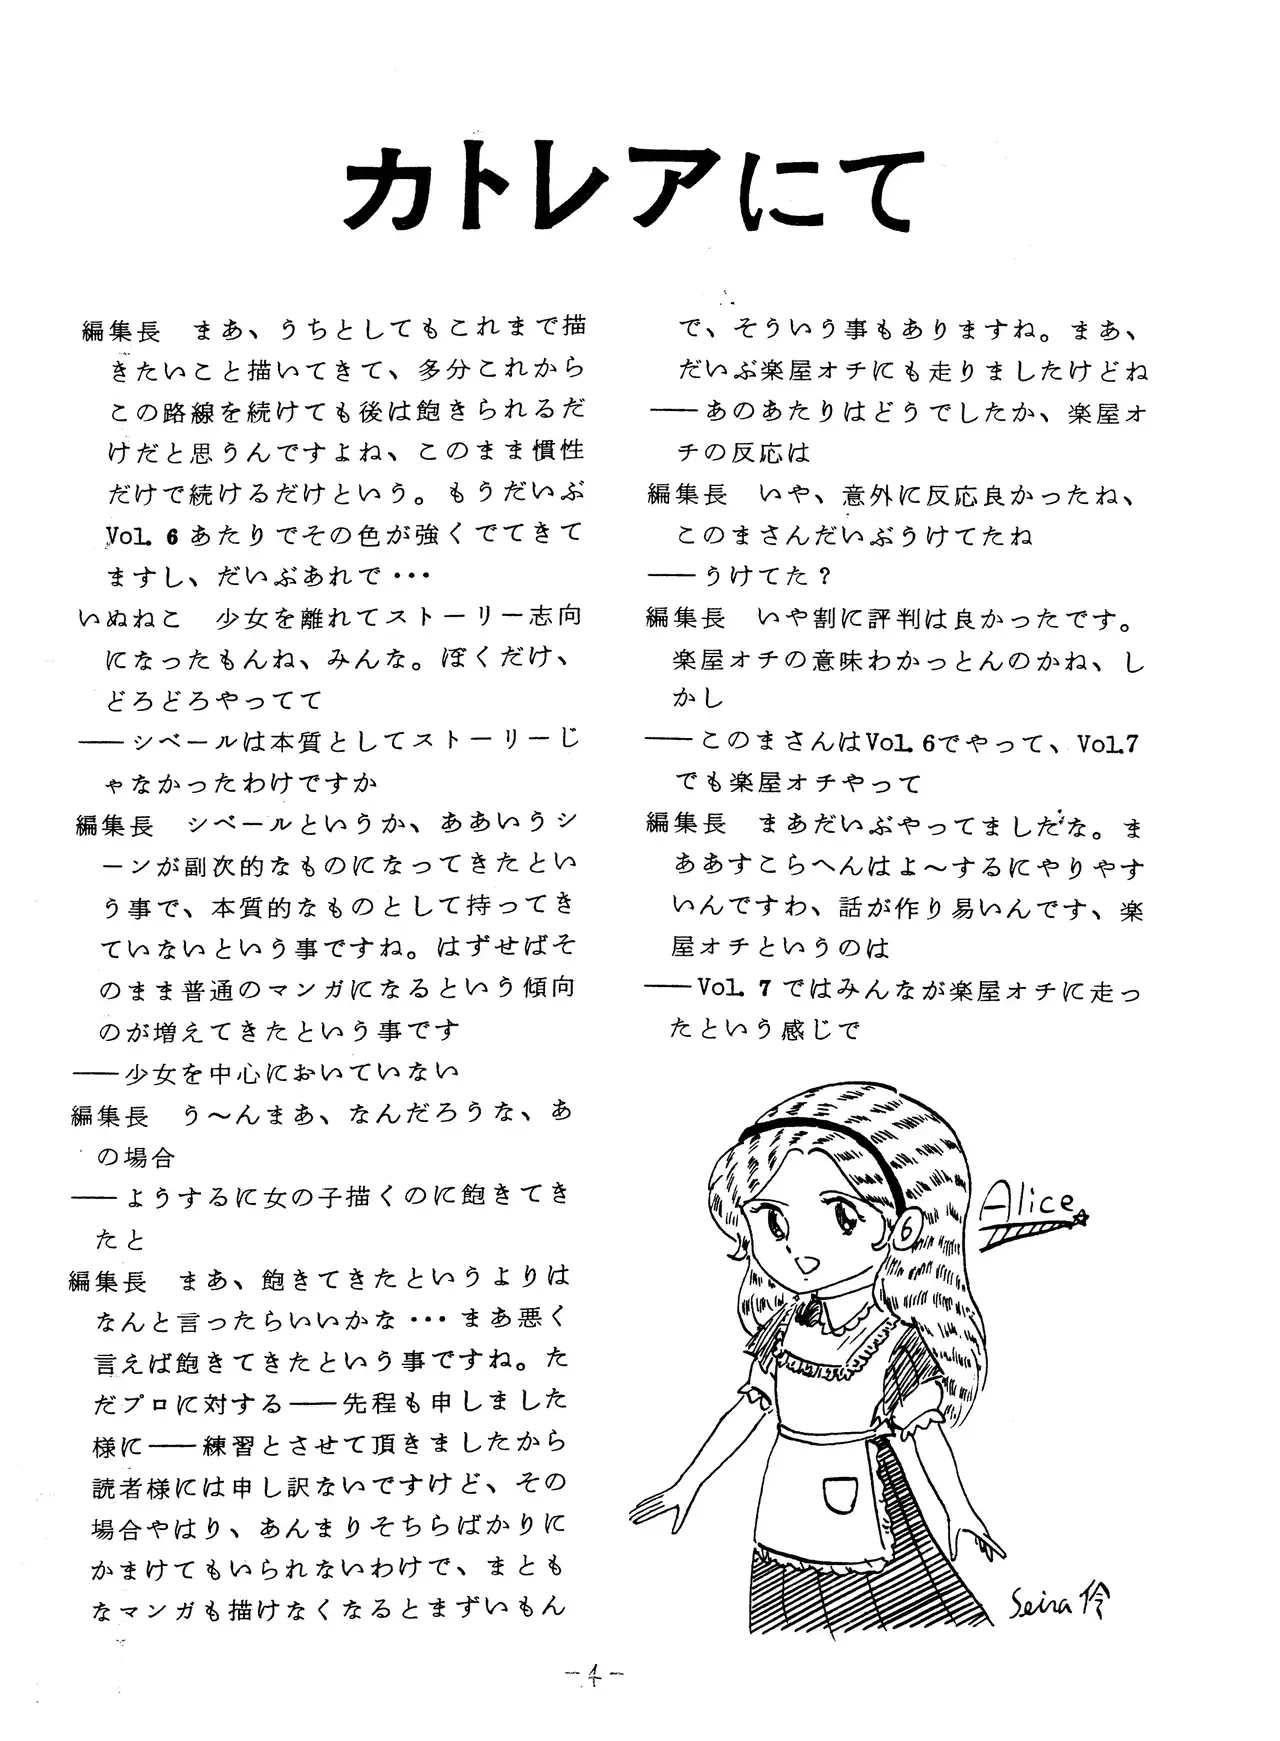 カトレアにて
編集長　まあ、うちとしてもこれまで描
きたいこと描いてきて、多分これから
この路線を続けても後は飽きられるだ
けだと思うんですよね、このまま慣性
だけで続けるだけという。もうだいぶ
Vol. 6 あたりでその色が強くでてきて
ますし、だいぶあれで・・・
いぬねこ　少女を離れてストーリー志向
になったもんね、みんな。ぼくだけ、
どろどろやってて
――シベールは本質としてストーリーじ
ゃなかったわけですか
編集長　シベールというか、ああいうシ
ーンが副次的なものになってきたとい
う事で、本質的なものとして持ってき
ていないという事ですね。はずせばそ
のまま普通のマンガになるという傾向
のが増えてきたという事です
――少女を中心においていない
編集長　う～んまあ、なんだろうな、あ
の場合
――ようするに女の子描くのに飽きてき
たと
編集長　まあ、飽きてきたというよりは
なんと言ったらいいかな・・・まあ悪く
言えば飽きてきたという事ですね。た
だプロに対する――先程も申しました
様に――練習とさせて頂きましたから
読者様には申し訳ないですけど、その
場合やはり、あんまりそちらばかりに
かまけてもいられないわけで、まとも
なマンガも描けなくなるとまずいもん
で、そういう事もありますね。まあ、
だいぶ楽屋オチにも走りましたけどね
――あのあたりはどうでしたか、楽屋オ
チの反応は
編集長　いや、意外に反応良かったね、
このまさんだいぶうけてたね
――うけてた？
編集長　いや割に評判は良かったです。
楽屋オチの意味わかっとんのかね、し
かし
――このまさんはVol. 6でやって、Vol.7
でも楽屋オチやって
編集長　まあだいぶやってましたな。ま
ああすこらへんはよ～するにやりやす
いんですわ、話が作り易いんです、楽
屋オチというのは
――Vol. 7 ではみんなが楽屋オチに走っ
たという感じで
Alice
Seira 伶
-4-